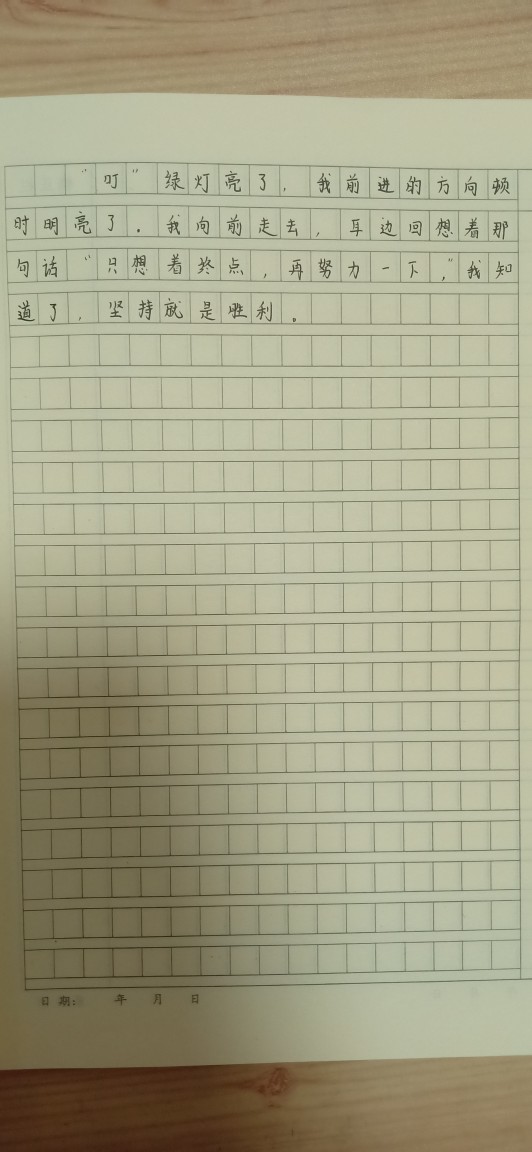 “叮”绿灯亮了，我前进的方向顿
时明亮了。我向前走去，耳边回想着那
句话“只想着终点，再努力一下，”我知
道了，坚持就是胜利。
日期： 年 月 日